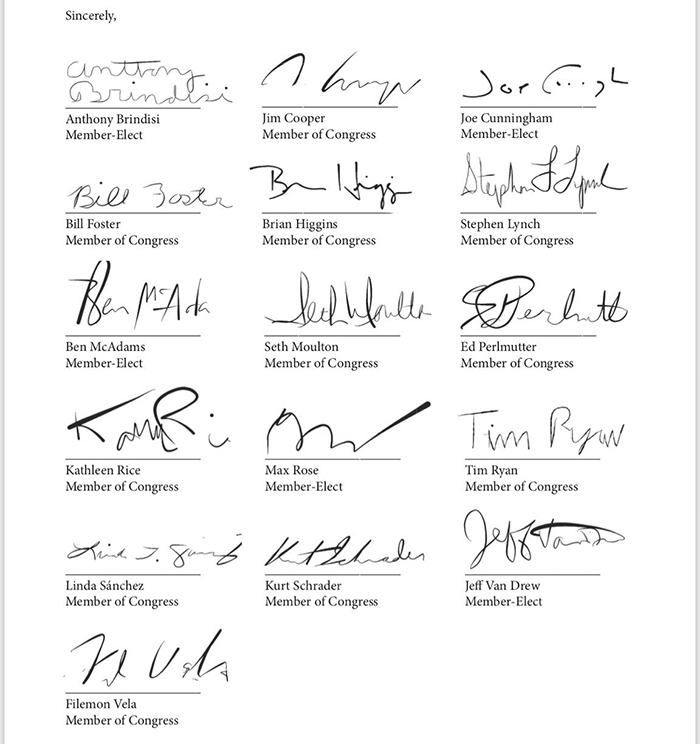 Sincerely,
Anthony Brindisi
Anthony Brindisi
Member-Elect
Jim Cooper
Member of Congress
Joe Cunningham
Member-Elect
Bill Foster
Bill Foster
Member of Congress
Brian Higgins
Member of Congress
Stephen F Lynch
Stephen Lynch
Member of Congress
Ben McAda
Ben McAdams
Member-Elect
Seth Moulton
Seth Moulton
Member of Congress
Ed Perlmutter
Member of Congress
Kathleen Rice
Member of Congress
Max Rose
Member-Elect
Tim Ryan
Tim Ryan
Member of Congress
Linda Sánchez
Member of Congress
Kurt Schrader
Kurt Schrader
Member of Congress
Jeff Van Drew
Member-Elect
Fil Vela
Filemon Vela
Member of Congress